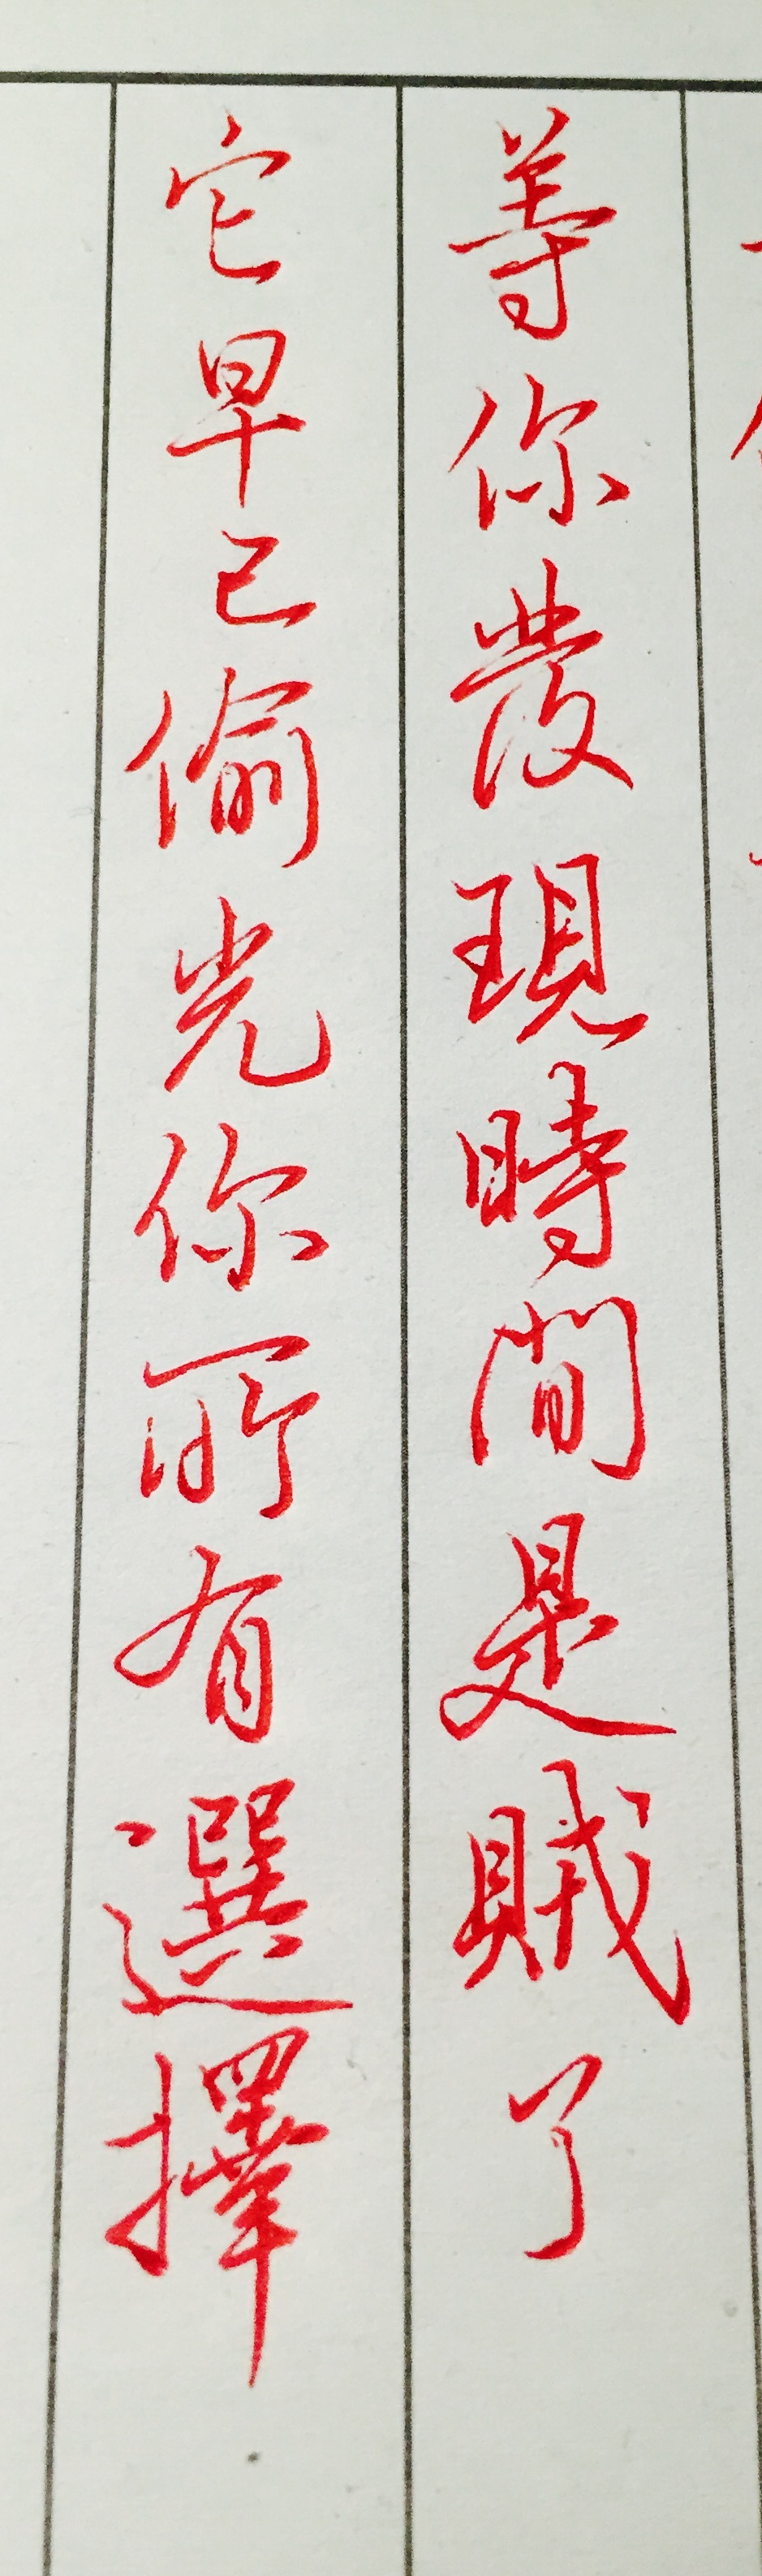 等你發現時間是賊了
它早已偷光你所有選擇